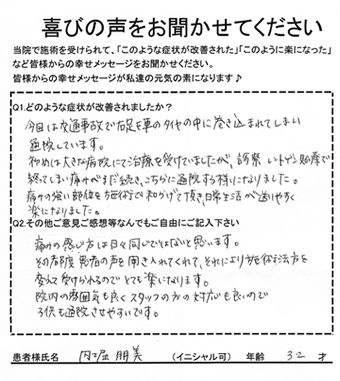 喜びの声をお聞かせてください
当院で施術を受けられて、「このような症状が改善された」「このように楽になった」
など皆様からの幸せメッセージをお聞かせください。
皆様からの幸せメッセージが私達の元気の素になります♪
Q1.どのような症状が改善されましたか？
今回は交通事故で右足を車のタイヤの中に巻き込まれてしまい
通院しています。
初めは大きな病院にて治療を受けていましたが、診察 レントゲン 処置で
終ってしまい痛みがまだ続き、こちらに通院する様になりました。
痛みの強い部位を施術で和かげて頂き日常生活が送りやすく
楽になりました。
Q2.その他ご意見ご感想等なんでもご自由にご記入下さい
痛みの感じ方は日々同じではないと思います。
その都度 患者の声を聞き入れてくれて、それにより施術方法を
変えて受けられるのでとても楽になります。
院内の雰囲気も良くスタッフの方の対応も良いので
子供も通院させやすいです。
患者様氏名 内堀 朋美 （イニシャル可） 年齢 32 才